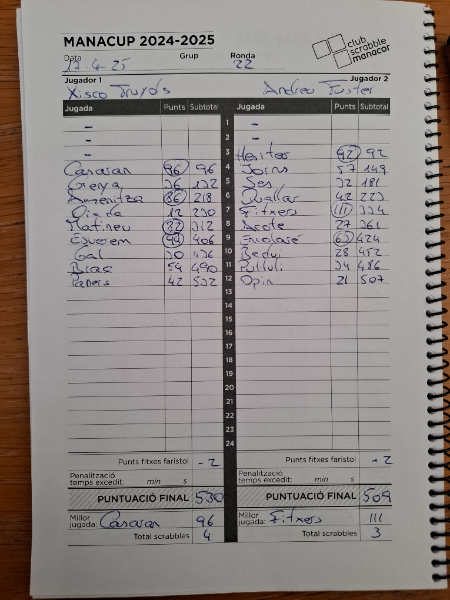 MANACUP 2024-2025
club scrabble manacor
Data 17-4-25 Grup Ronda 22
Jugador 1 Jugador 2
Xisco Andreu Fuster
Jugada Punts Subtotal Jugada Punts Subtotal
- 1 -
- 2 -
- 3 Hesitar 92 92
Casaran 96 96 4 Jorns 57 149
Genya 36 132 5 Ses 32 181
Amenitza 86 218 6 Quallar 42 223
12 230 7 Fitxers 111 334
Matineu 82 312 8 Acote 27 361
94 406 9 63 424
Gal 30 436 10 28 452
Bras 54 490 11 34 486
Paners 42 532 12 Opin 21 507
13
14
15
16
17
18
19
20
21
22
23
24
Punts fitxes faristol -2 Punts fitxes faristol +2
Penalització temps excedit: min s Penalització temps excedit: min s
PUNTUACIÓ FINAL 530 PUNTUACIÓ FINAL 509
Millor jugada: Casaran 96 Millor jugada: Fitxers 111
Total scrabbles 4 Total scrabbles 3